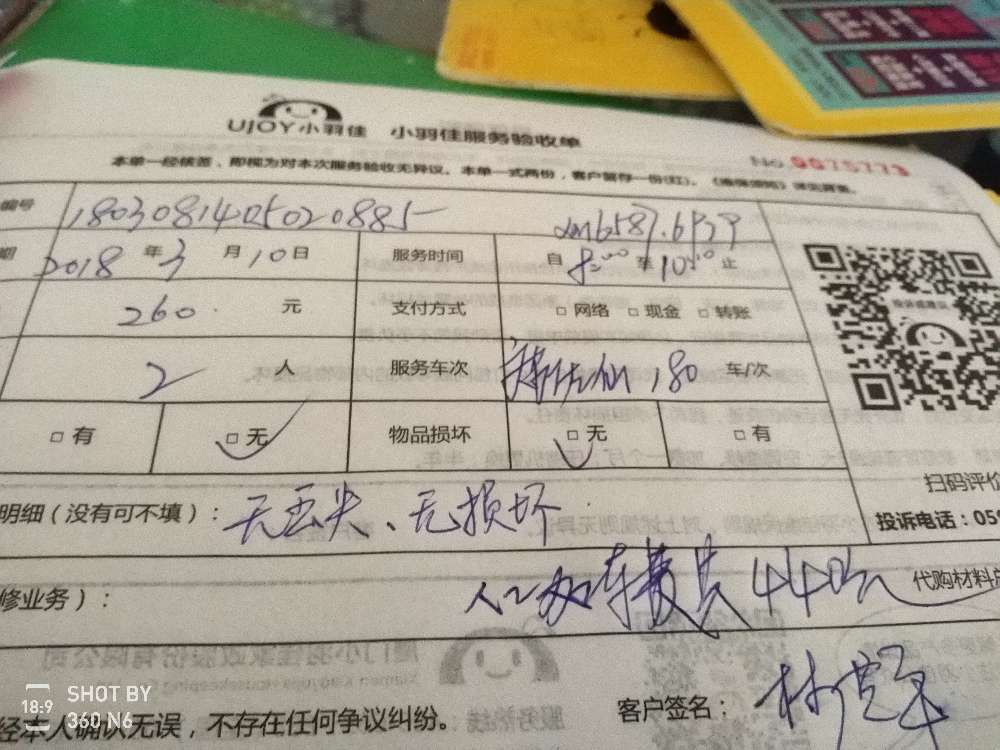 UJOY小羽佳 小羽佳服务验收单
No.0075773
本单一经核签，即视为对本次服务验收无异议。本单一式两份，客户留存一份(红)。
编号 1803081405020885
期 2018 年 3 月 10 日 服务时间 自 8:00 至 10:10 止
260 元 支付方式 □ 网络 □ 现金 □ 转账
2 人 服务车次 180 车/次
□ 有 □ 无 物品损坏 □ 无 □ 有
扫码评价
明细（没有可不填）： 无丢失、无损坏
投诉电话：059
修业务）： 车费共440元 代购材料
经本人确认无误，不存在任何争议纠纷。 客户签名：
SHOT BY
18:9
360 N6